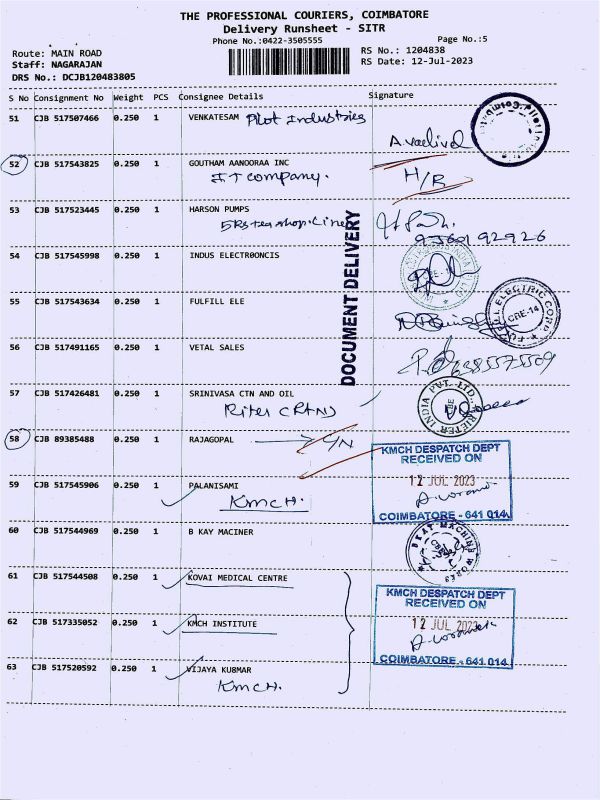 THE PROFESSIONAL COURIERS, COIMBATORE
Delivery Runsheet - SITR
Phone No.:0422-3505555 Page No.:5
Route: MAIN ROAD RS No.: 1204838
Staff: NAGARAJAN RS Date: 12-Jul-2023
DRS No.: DCJB120483805
S No Consignment No Weight PCS Consignee Details Signature
51 CJB 517507466 0.250 1 VENKATESAM Pilot Industries
52 CJB 543825 0.250 1 GOUTHAM AANOORAA INC
IT company. H/R
53 CJB 517523445 0.250 1 HARSON PUMPS
5Rs tea shop.
54 CJB 517545998 0.250 1 INDUS ELECTROONCIS
55 CJB 517543634 0.250 1 FULFILL ELE
CBE-14
DOCUMENT DELIVERY
56 CJB 517491165 0.250 1 VETAL SALES
57 CJB 517426481 0.250 1 SRINIVASA CTN AND OIL
RIETER INDIA PVT. LTD.
58 CJB 89385488 0.250 1 RAJAGOPAL
KMCH DESPATCH DEPT
RECEIVED ON
59 CJB 517545906 0.250 1 PALANISAMI 12 JUL 2023
KMCH.
COIMBATORE - 641 014
60 CJB 517544969 0.250 1 B KAY MACINER
61 CJB 517544508 0.250 1 KOVAI MEDICAL CENTRE
KMCH DESPATCH DEPT
RECEIVED ON
62 CJB 517335052 0.250 1 KMCH INSTITUTE 12 JUL 2023
COIMBATORE - 641 014
63 CJB 517520592 0.250 1 VIJAYA KUBMAR
KMCH.